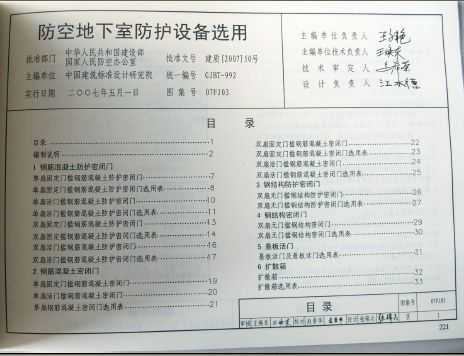 防空地下室防护设备选用
批准部门 中华人民共和国建设部 批准文号 建质[2007]50号
国家人民防空办公室
主编单位 中国建筑标准设计研究院 统一编号 GJBT-992
实行日期 二〇〇七年五月一日 图集号 07FJ03
主编单位负责人
主编单位技术负责人
技术审定人
设计负责人
目 录
目录 1
编制说明 2
1 钢筋混凝土防护密闭门
单扇固定门槛钢筋混凝土防护密闭门 7
单扇固定门槛钢筋混凝土防护密闭门选用表 8
单扇活门槛钢筋混凝土防护密闭门 10
单扇活门槛钢筋混凝土防护密闭门选用表 11
双扇固定门槛钢筋混凝土防护密闭门 13
双扇固定门槛钢筋混凝土防护密闭门选用表 14
双扇活门槛钢筋混凝土防护密闭门 16
双扇活门槛钢筋混凝土防护密闭门选用表 17
2 钢筋混凝土密闭门
单扇固定门槛钢筋混凝土密闭门 19
单扇活门槛钢筋混凝土密闭门 20
单扇活门槛钢筋混凝土密闭门选用表 21
双扇固定门槛钢筋混凝土密闭门 22
双扇固定门槛钢筋混凝土密闭门选用表 23
双扇活门槛钢筋混凝土密闭门 24
双扇活门槛钢筋混凝土密闭门选用表 25
3 钢结构防护密闭门
双扇无门槛钢结构防护密闭门 26
双扇无门槛钢结构防护密闭门选用表 27
4 钢结构密闭门
双扇无门槛钢结构密闭门 29
双扇无门槛钢结构密闭门选用表 30
5 悬板活门
悬板活门及悬板活门选用表 31
6 扩散箱
扩散箱 32
扩散箱选用表 33
目录 图集号 07FJ03
审核 校对 设计 页 1
221